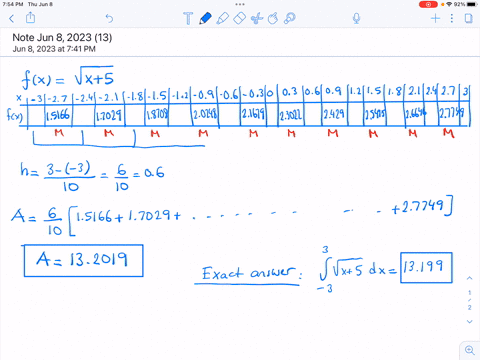 7:54 PM Thu Jun 8
92%
Note Jun 8, 2023 (13)
Jun 8, 2023 at 7:41 PM
f(x) = √x+5
x -3 -2.7 -2.4 -2.1 -1.8 -1.5 -1.2 -0.9 -0.6 -0.3 0 0.3 0.6 0.9 1.2 1.5 1.8 2.1 2.4 2.7 3
f(x) 1.5166 1.7029 1.8708 2.0248 2.1679 2.3022 2.429 2.5495 2.6646 2.7749
M M M M M M M M M M
h = 3-(-3)/10 = 6/10 = 0.6
A = 6/10 [1.5166 + 1.7029 + . . . . . . . . . . . . + 2.7749]
A = 13.2019
Exact answer: ∫₋₃³ √x+5 dx = 13.199
1
/
2